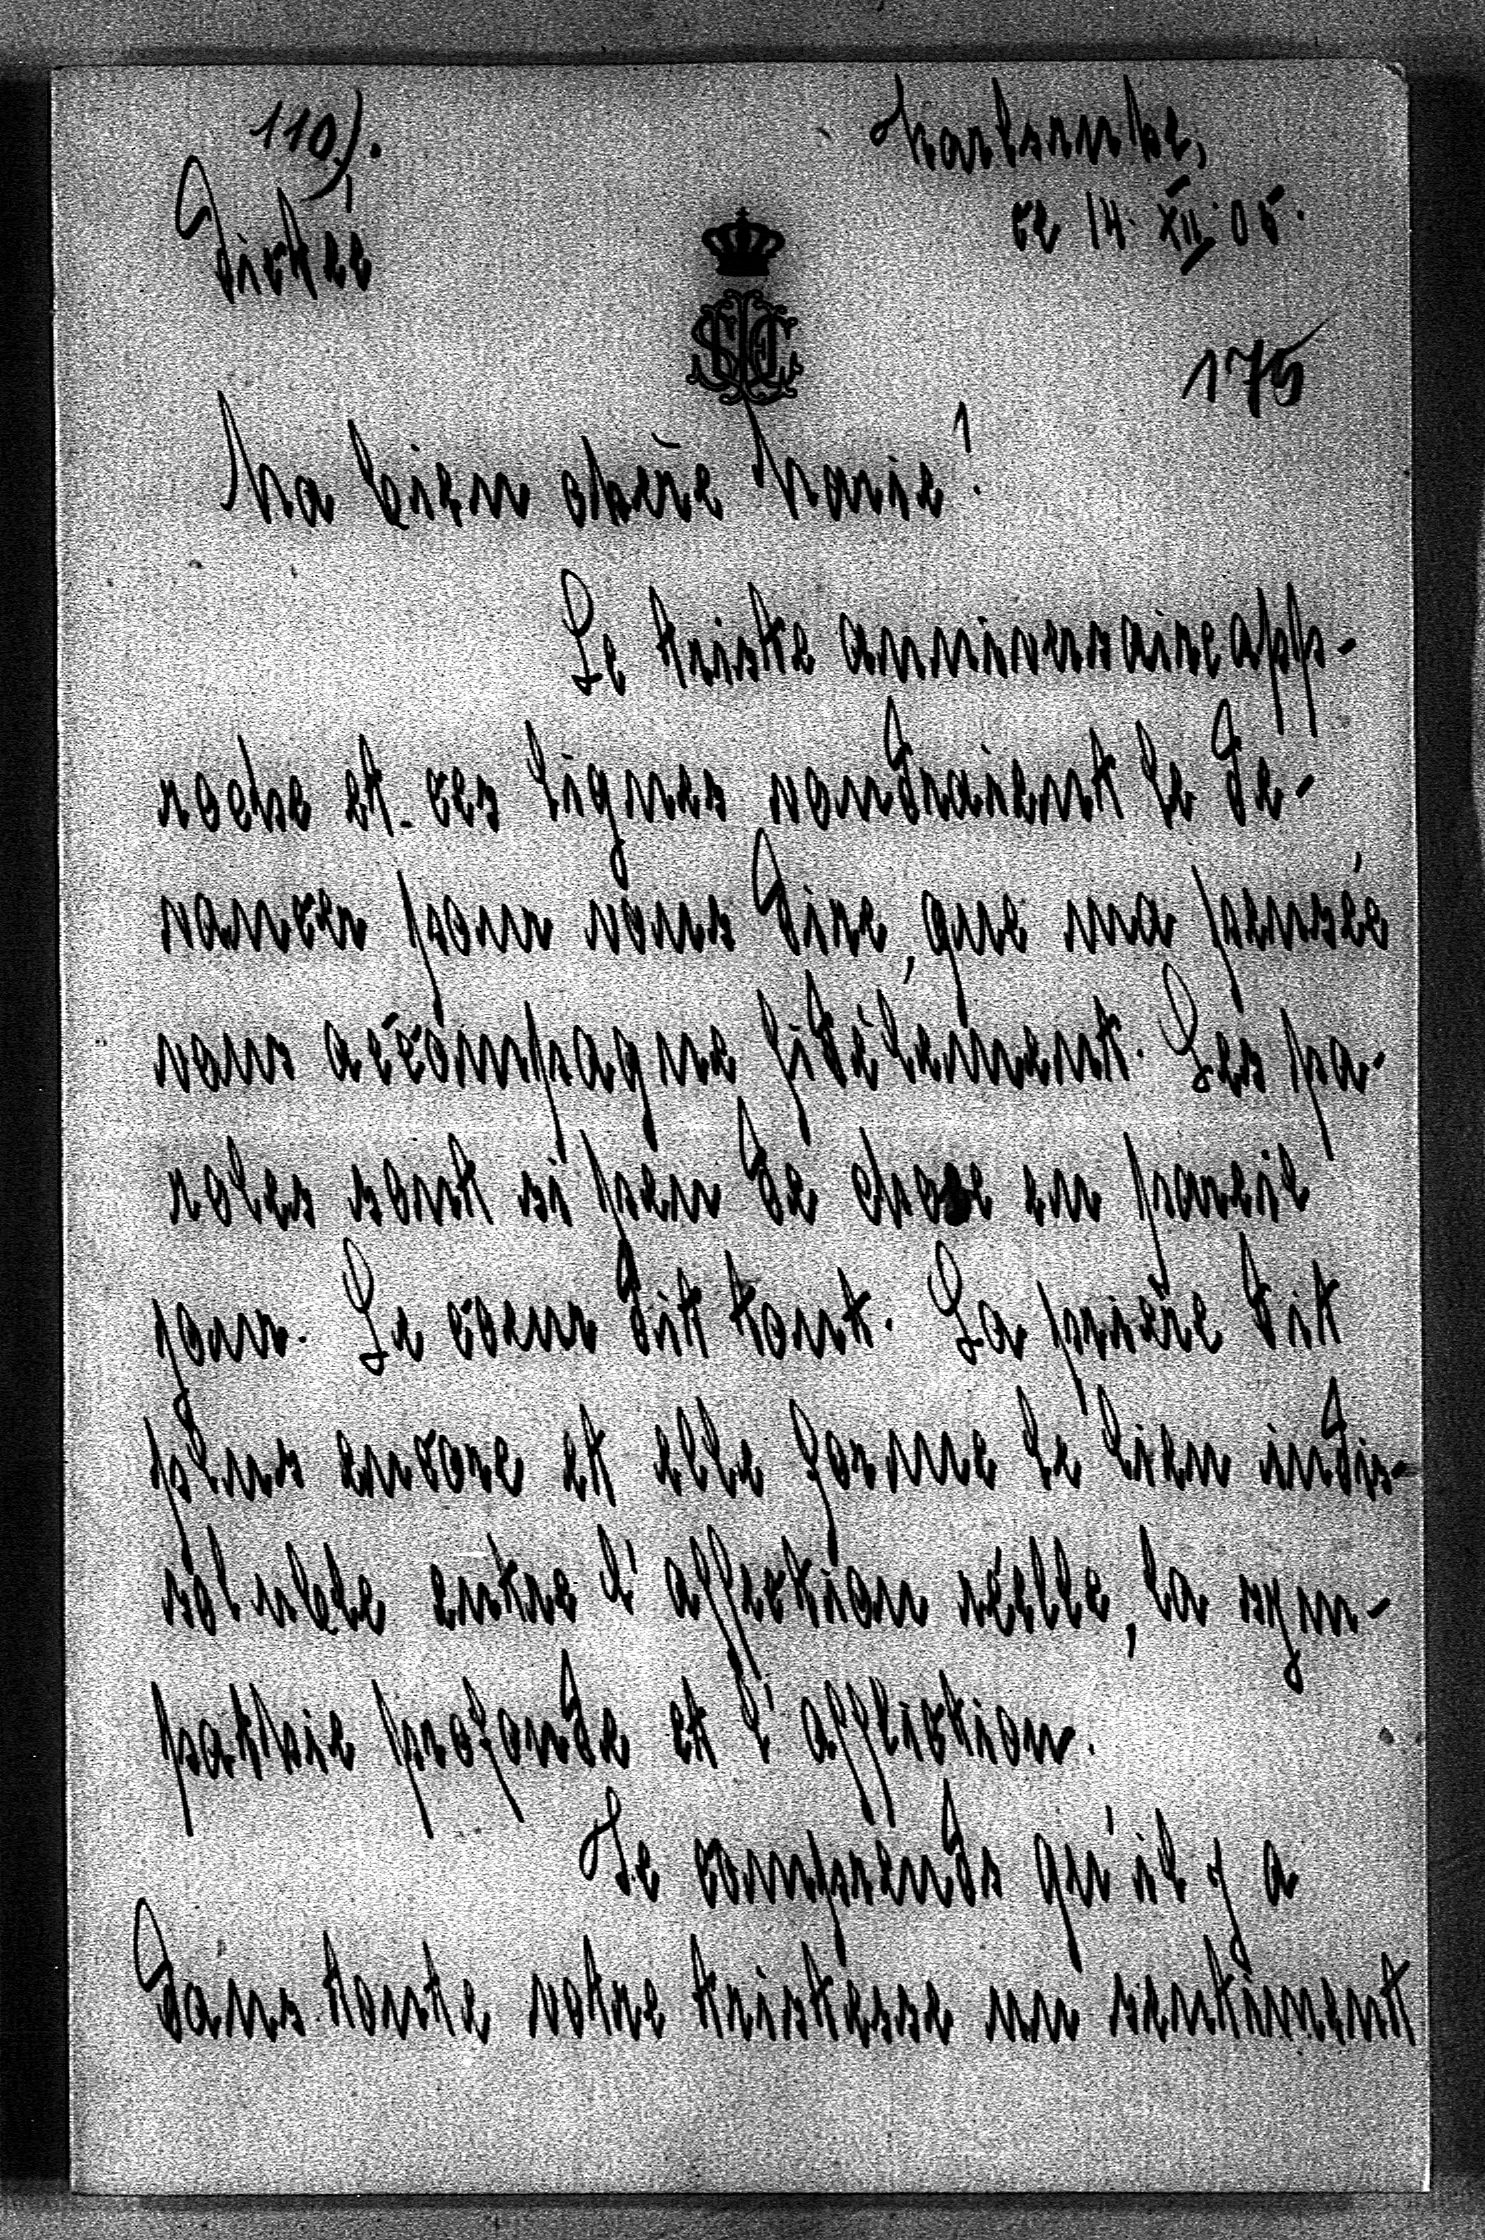 110).
Karlsruhe,
Dictée
ce 14. XII. 05.
175
Ma bien chère Marie!
Le triste anniversaire app-
roche et ces lignes voudraient le de-
vancer pour vous dire, que ma pensée
vous accompagne fidèlement. Les pa-
roles sont si peu de chose en pareil
jour. Le coeur dit tout. La prière dit
plus encore et elle forme le lien indis-
soluble entre l'affection réelle, la sym-
pathie profonde et l'affliction.
Je comprends qu'il y a
dans toute votre tristesse un sentiment